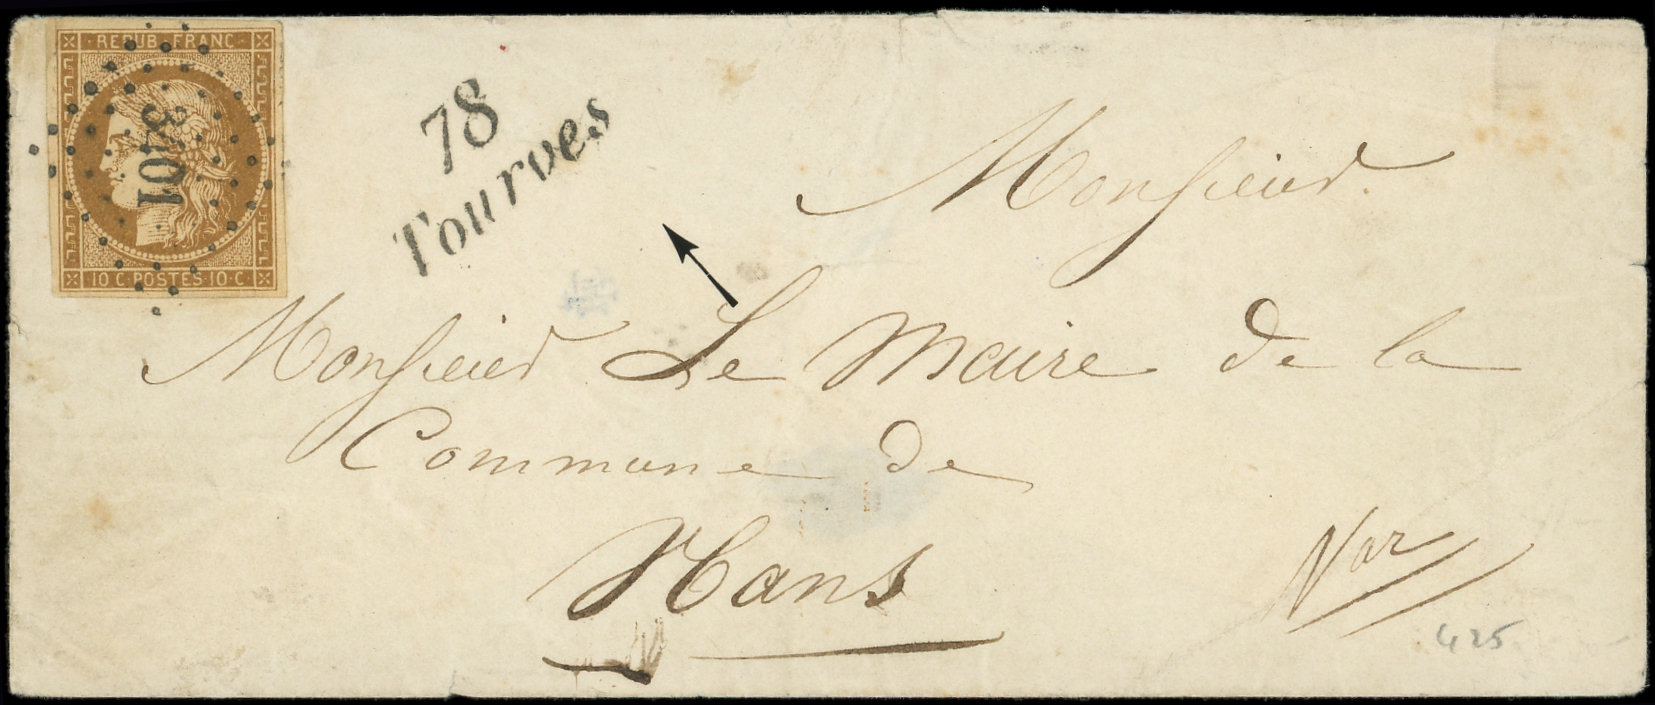 REPUB. FRANC.
3401
10 C. POSTES. 10 C.
78
Tourves
Monsieur
Monsieur Le Maire de la
Commune de
Nans
Var
425